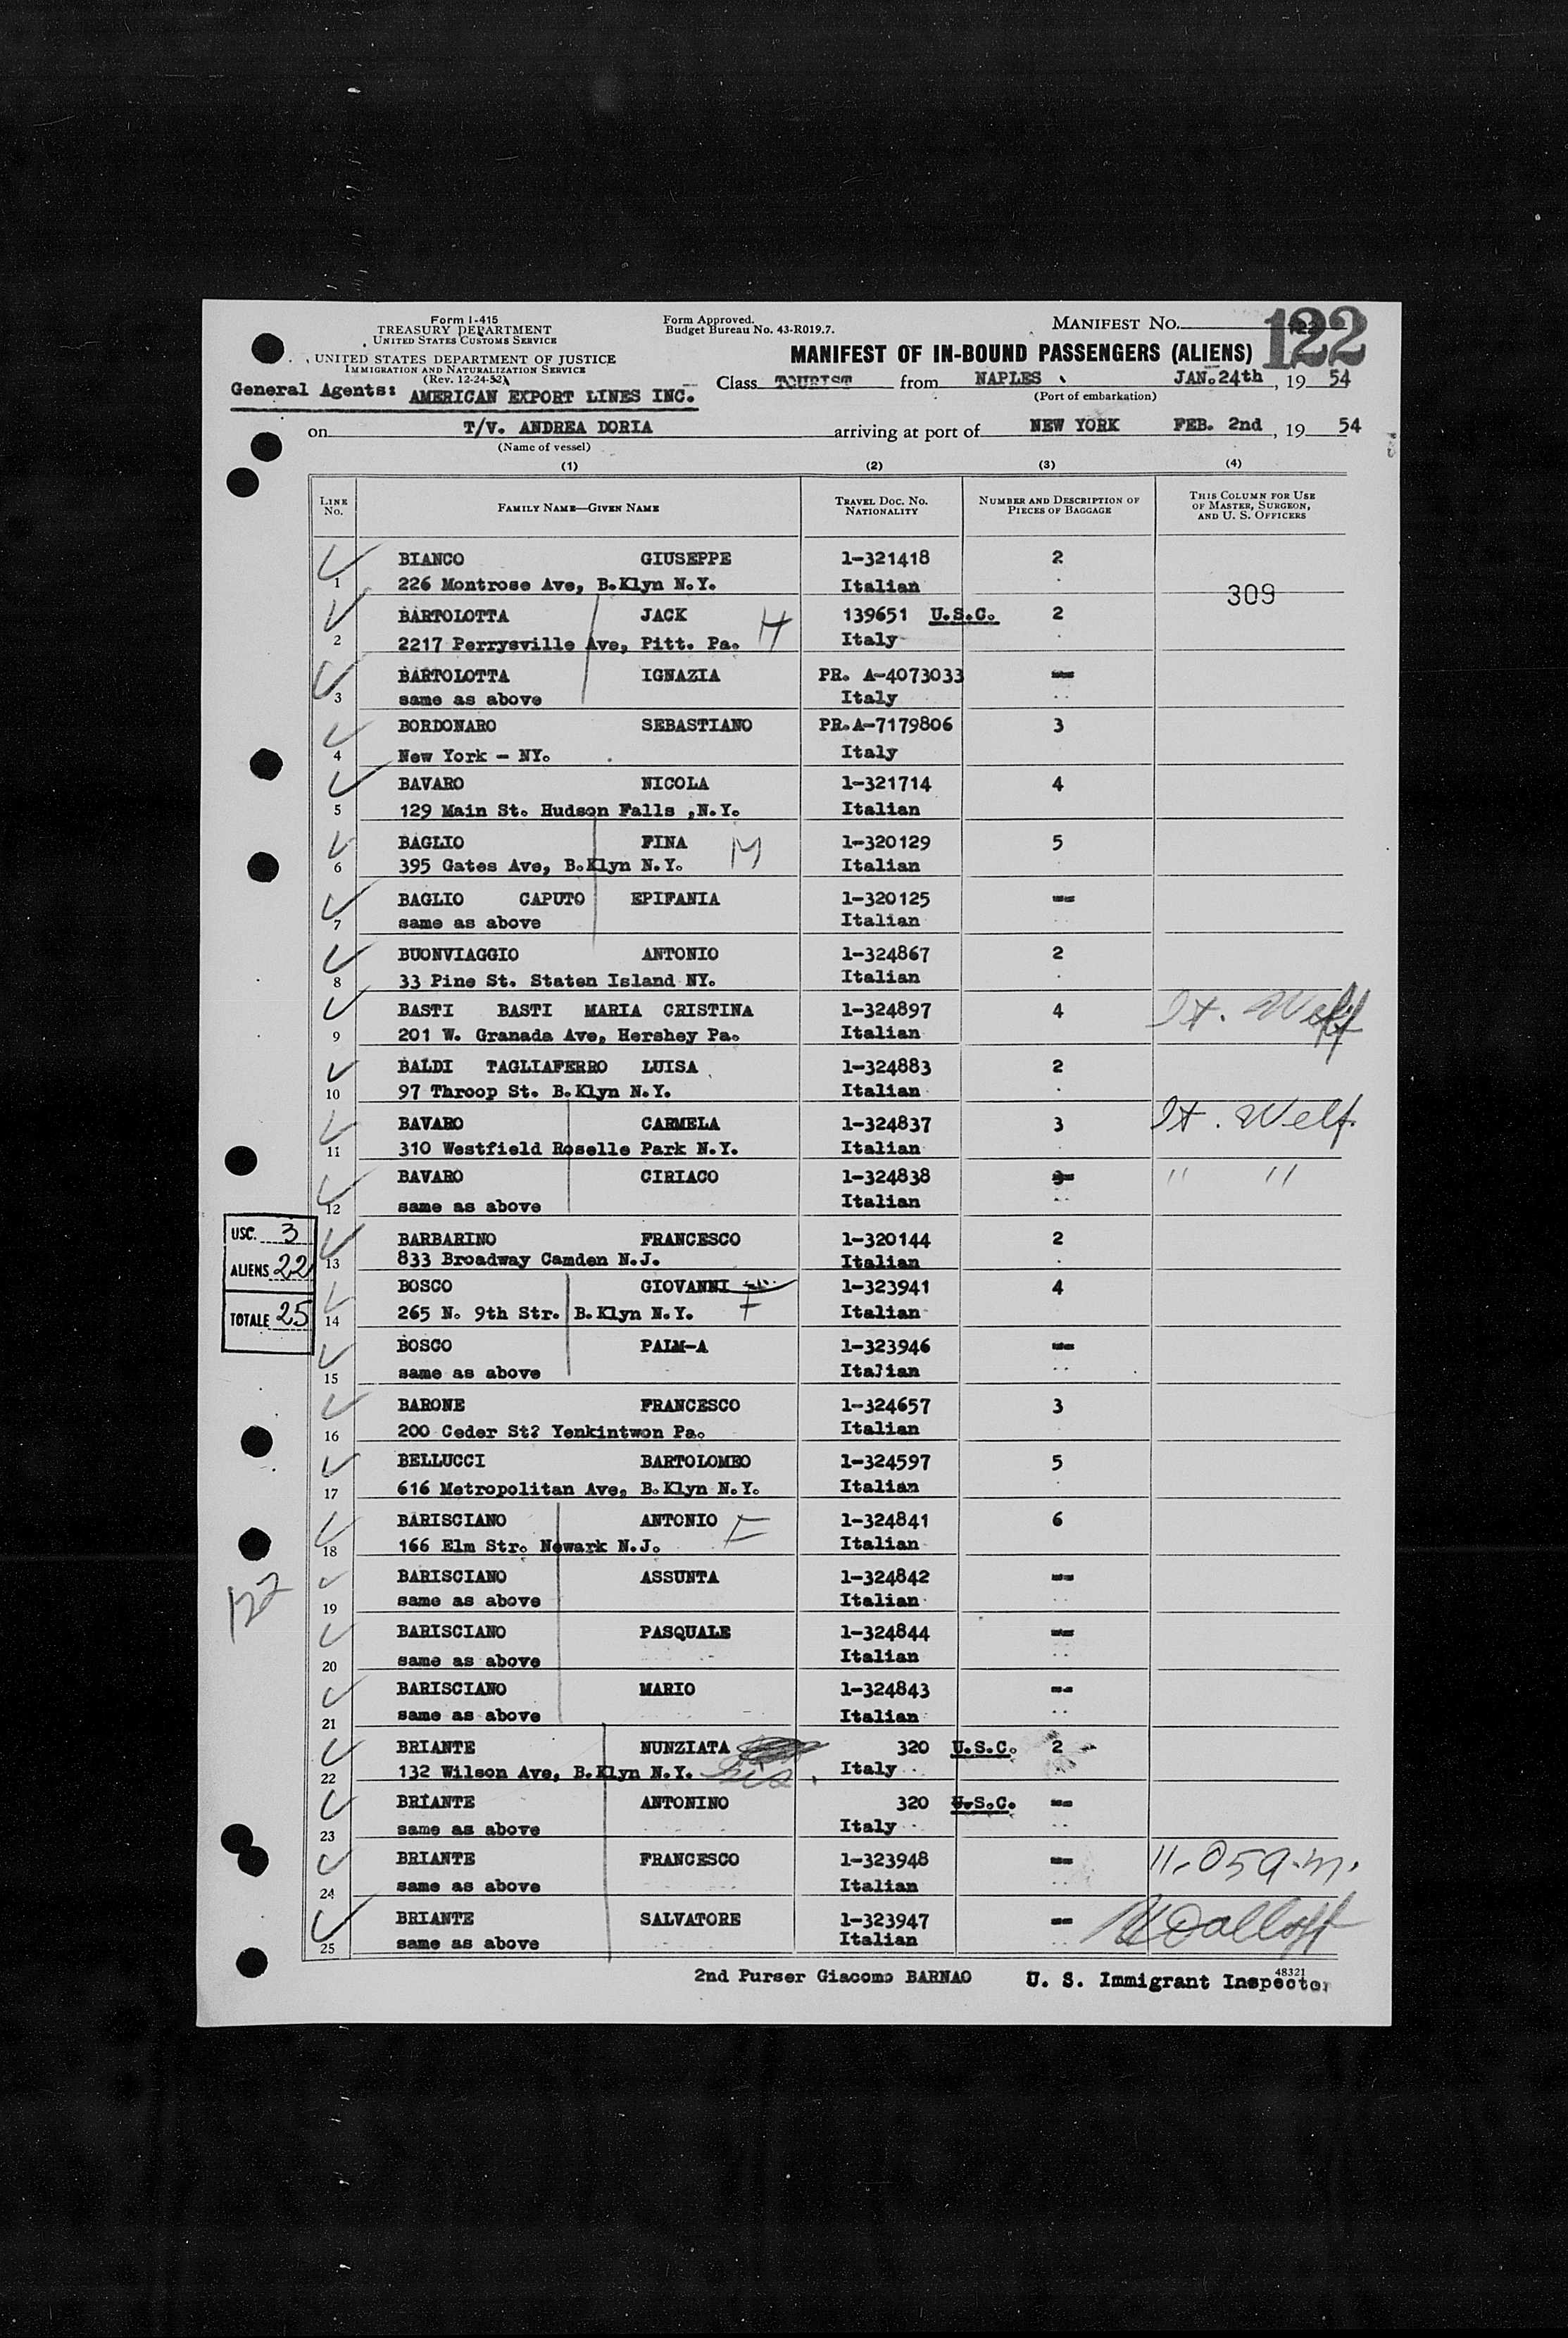 Form I-415
TREASURY DEPARTMENT
UNITED STATES CUSTOMS SERVICE
UNITED STATES DEPARTMENT OF JUSTICE
IMMIGRATION AND NATURALIZATION SERVICE
(Rev. 12-24-52)
Form Approved.
Budget Bureau No. 43-R019.7.
MANIFEST NO. 122
MANIFEST OF IN-BOUND PASSENGERS (ALIENS)
General Agents: AMERICAN EXPORT LINES INC.
Class TOURIST from NAPLES JAN. 24th, 19 54
(Port of embarkation)
on T/V. ANDREA DORIA arriving at port of NEW YORK FEB. 2nd, 19 54
(Name of vessel)
(1) (2) (3) (4)
LINE No. FAMILY NAME—GIVEN NAME TRAVEL DOC. NO. NATIONALITY NUMBER AND DESCRIPTION OF PIECES OF BAGGAGE THIS COLUMN FOR USE OF MASTER, SURGEON, AND U. S. OFFICERS
BIANCO GIUSEPPE 1-321418 2
1 226 Montrose Ave, B.Klyn N.Y. Italian 309
BARTOLOTTA JACK H 139651 U.S.C. 2
2 2217 Perrysville Ave, Pitt. Pa. Italy
BARTOLOTTA IGNAZIA PR. A-4073033 --
3 same as above Italy
BORDONARO SEBASTIANO PR.A-7179806 3
4 New York - NY. Italy
BAVARO NICOLA 1-321714 4
5 129 Main St. Hudson Falls ,N.Y. Italian
BAGLIO FINA M 1-320129 5
6 395 Gates Ave, B.Klyn N.Y. Italian
BAGLIO CAPUTO EPIFANIA 1-320125 --
7 same as above Italian
BUONVIAGGIO ANTONIO 1-324867 2
8 33 Pine St. Staten Island NY. Italian
BASTI BASTI MARIA CRISTINA 1-324897 4 It. Welf
9 201 W. Granada Ave, Hershey Pa. Italian
BALDI TAGLIAFERRO LUISA 1-324883 2
10 97 Throop St. B.Klyn N.Y. Italian
BAVARO CARMELA 1-324837 3 It. Welf.
11 310 Westfield Roselle Park N.Y. Italian
BAVARO CIRIACO 1-324838 -- " "
12 same as above Italian
BARBARINO FRANCESCO 1-320144 2
13 833 Broadway Camden N.J. Italian
USC. 3
ALIENS 22
TOTALE 25
BOSCO GIOVANNI F 1-323941 4
14 265 N. 9th Str. B.Klyn N.Y. Italian
BOSCO PALM-A 1-323946 --
15 same as above Italian
BARONE FRANCESCO 1-324657 3
16 200 Ceder St? Yenkintwon Pa. Italian
BELLUCCI BARTOLOMEO 1-324597 5
17 616 Metropolitan Ave, B.Klyn N.Y. Italian
BARISCIANO ANTONIO F 1-324841 6
18 166 Elm Str. Newark N.J. Italian
122
BARISCIANO ASSUNTA 1-324842 --
19 same as above Italian
BARISCIANO PASQUALE 1-324844 --
20 same as above Italian
BARISCIANO MARIO 1-324843 --
21 same as above Italian
BRIANTE NUNZIATA 320 U.S.C. 2
22 132 Wilson Ave, B.Klyn N.Y. Italy
BRIANTE ANTONINO 320 U.S.C. --
23 same as above Italy
BRIANTE FRANCESCO 1-323948 -- 11.05 a.m.
24 same as above Italian
BRIANTE SALVATORE 1-323947 --
25 same as above Italian
2nd Purser Giacomo BARNAO U. S. Immigrant Inspector
48321